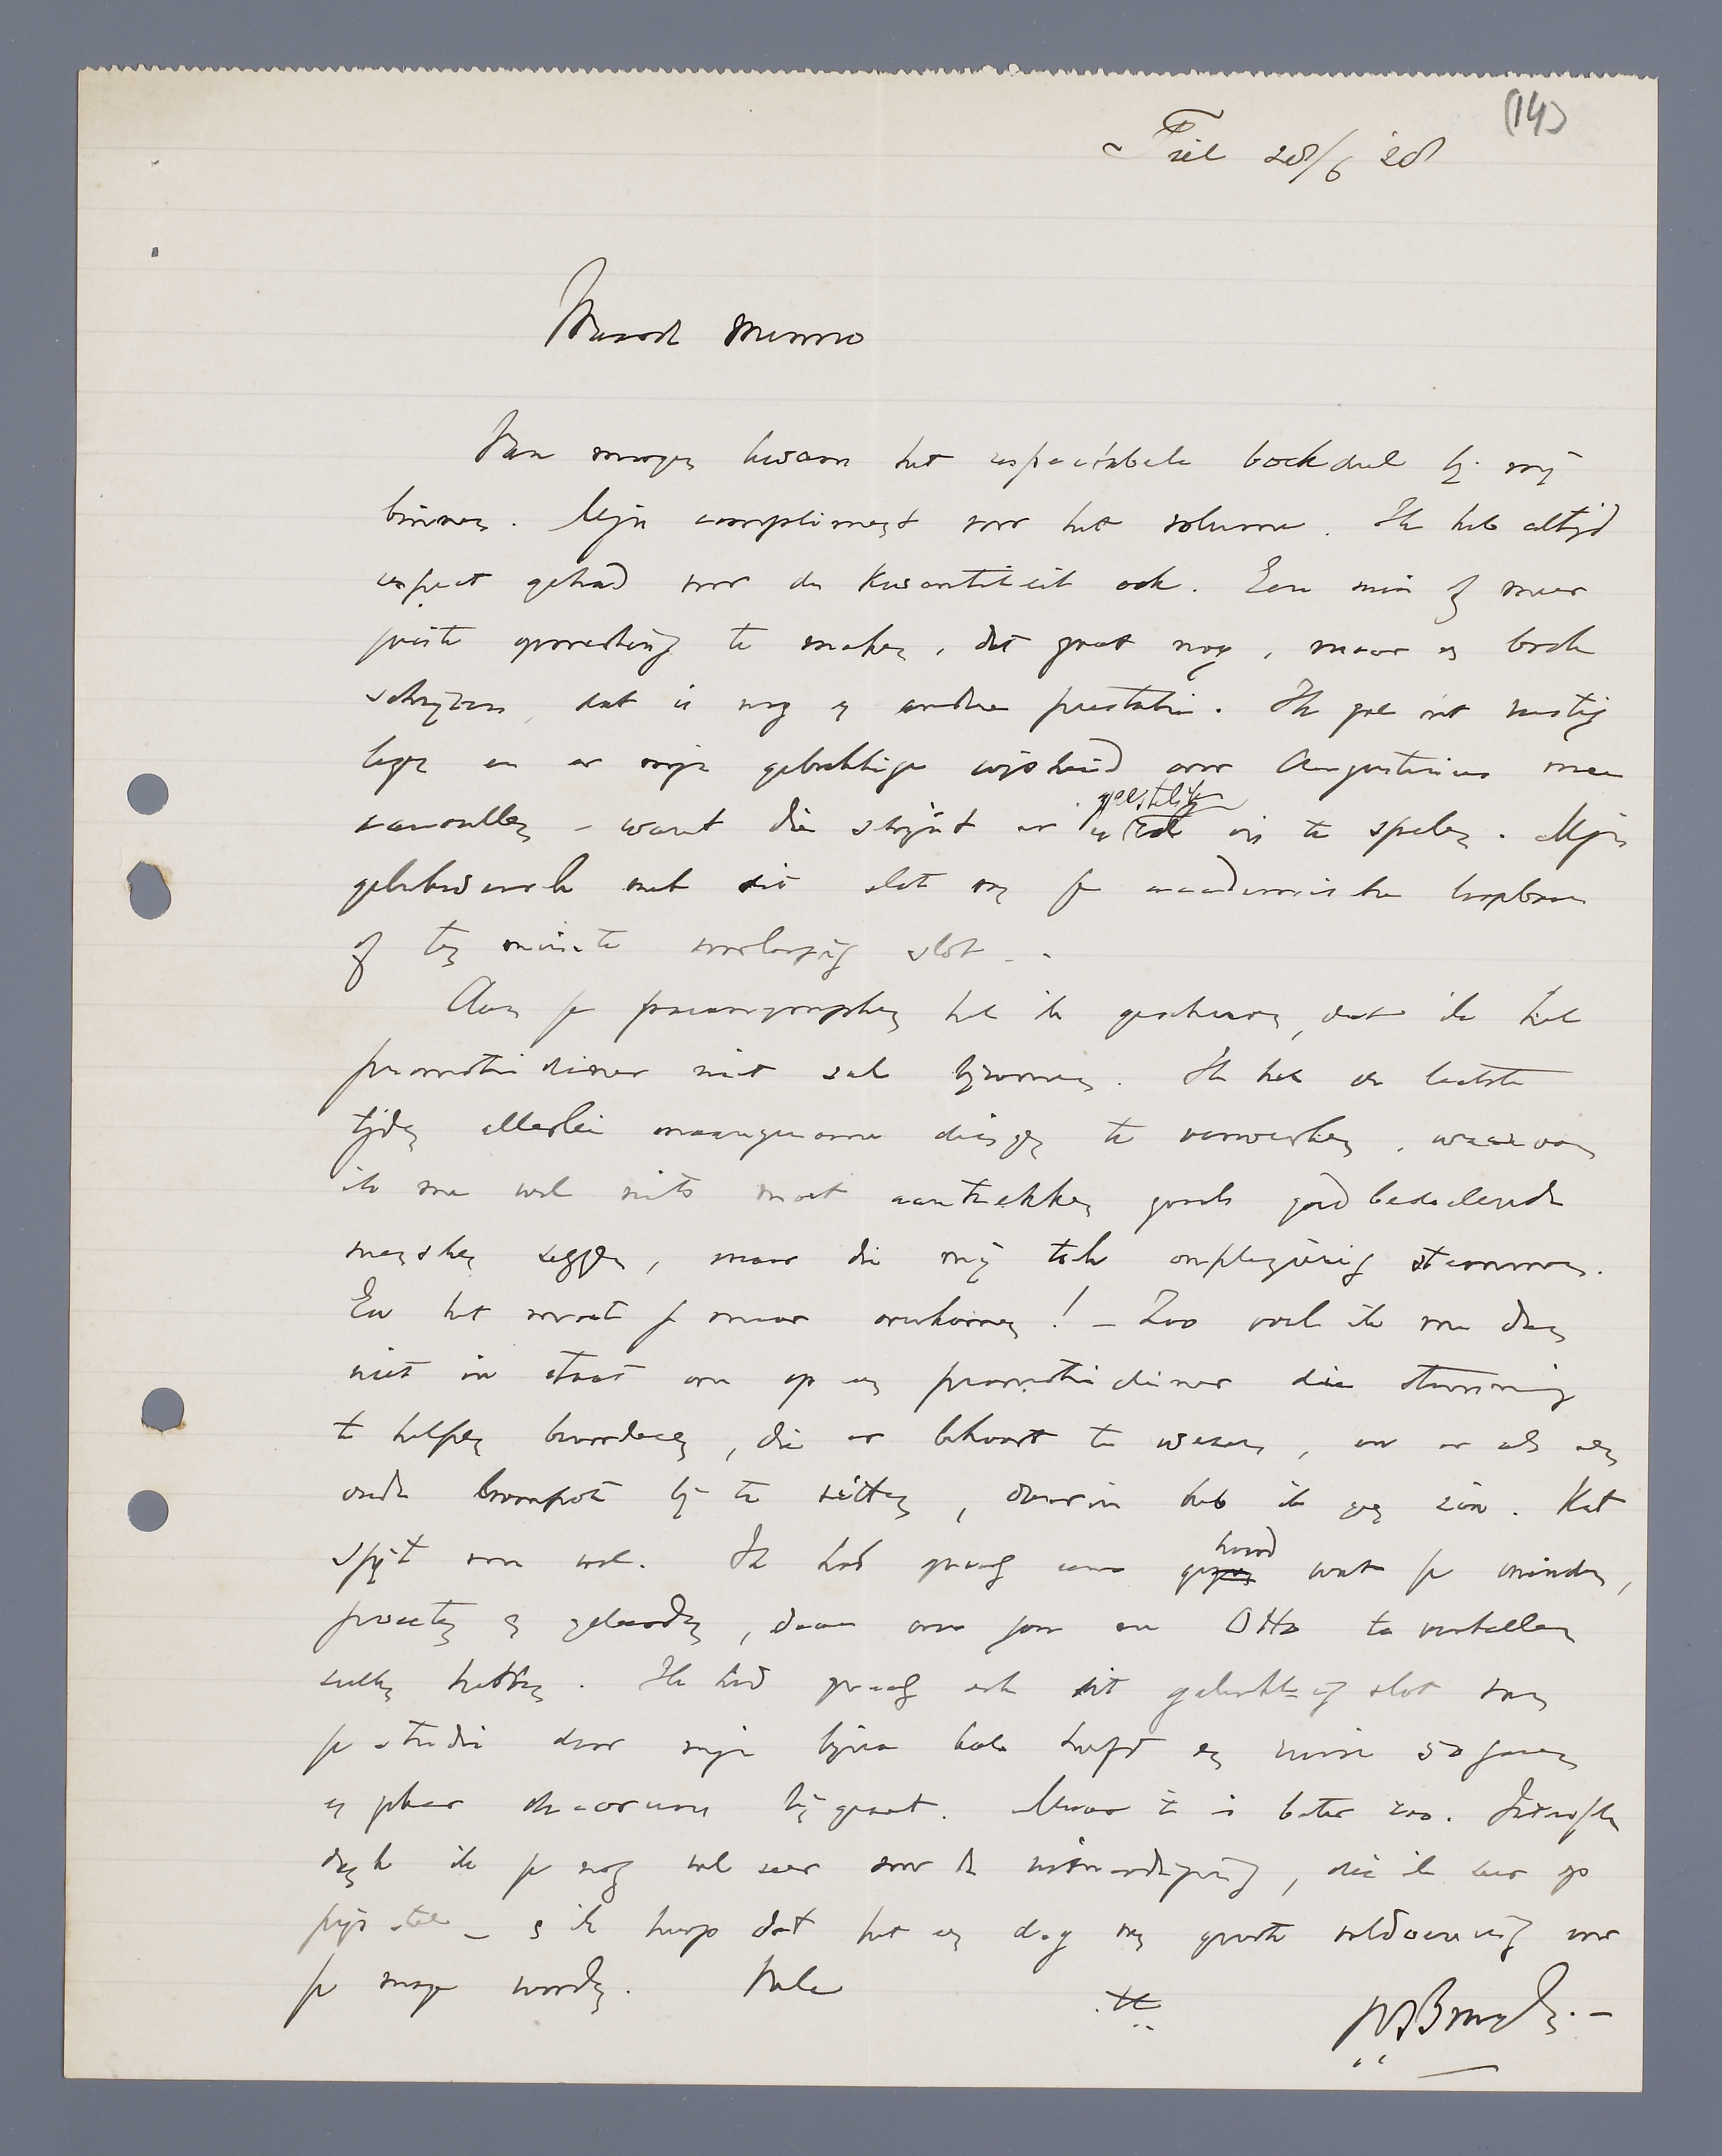 (14)
Tiel 28/6 '28
Waarde Menno
Van morgen kwam het respectabele boekdeel bij mij
binnen. Mijn compliment voor het volume. Ik heb altijd
respect gehad voor de kwantiteit ook. Een min of meer
juiste opmerking te maken, dat gaat nog, maar een boek
schrijven, dat is nog een andere prestatie. Ik ga het rustig
lezen en er mijn gebrekkige wijsheid over Augustinus mee
aanvullen – want die schijnt er een geestelijke rol in te spelen. Mijn
gelukwensch met dit slot van je academische loopbaan
of ten minste voorloopig slot –.
Aan je paranymphen heb ik geschreven, dat ik het
promotiediner niet zal bijwonen. Ik heb de laatste
tijden allerlei onaangename dingen te verwerken, waarvan
ik me wel niets moet aantrekken zooals goedbedoelende
menschen zeggen, maar die mij toch onplezierig stemmen.
En het moet je maar overkomen! – Zoo voel ik me dan
niet in staat om op een promotiediner die stemming
te helpen bevorderen, die er behoort te wezen, en er als een
oude brompot bij te zitten, daarin heb ik geen zin. Het
spijt me wel. Ik had graag eens gehoord wat je vrienden,
poëeten en geleerden, daar over jou en Otto te vertellen
zullen hebben. Ik had graag ook dit gelukkig slot van
je studie door mijn bijna kale hoofd en ruim 50 jaren
een zeker decorum bijgezet. Maar 't is beter zoo. Intusschen
dank ik je nog wel zeer voor de uitnoodiging, die ik zeer op
prijs stel – en ik hoop dat het een dag van groote voldoening voor
je moge worden. Vale
tt